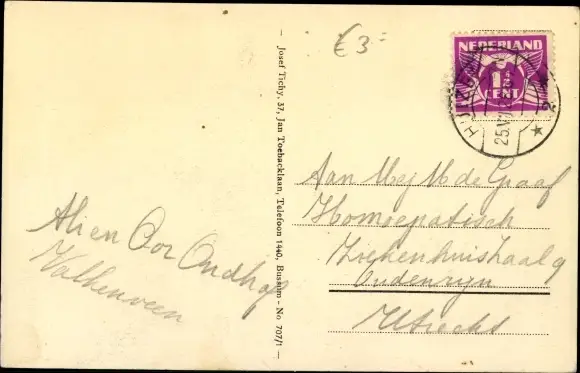 € 3-
NEDERLAND
1½
CENT
25.VII
2
Josef Tichy, 37, Jan Toebacklaan, Telefoon 1440, Bussum - No 707/1
Aan Mej M de Graaf
Homoeopatisch
Ziekenhuis
Oudenrijn
Utrecht
Alien Cor Oudhof
Valkenveen